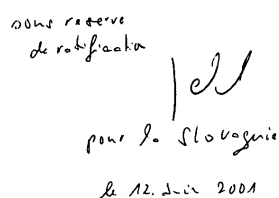 sous reserve
de ratification
pour la Slovaquie
le 12. Juin 2001